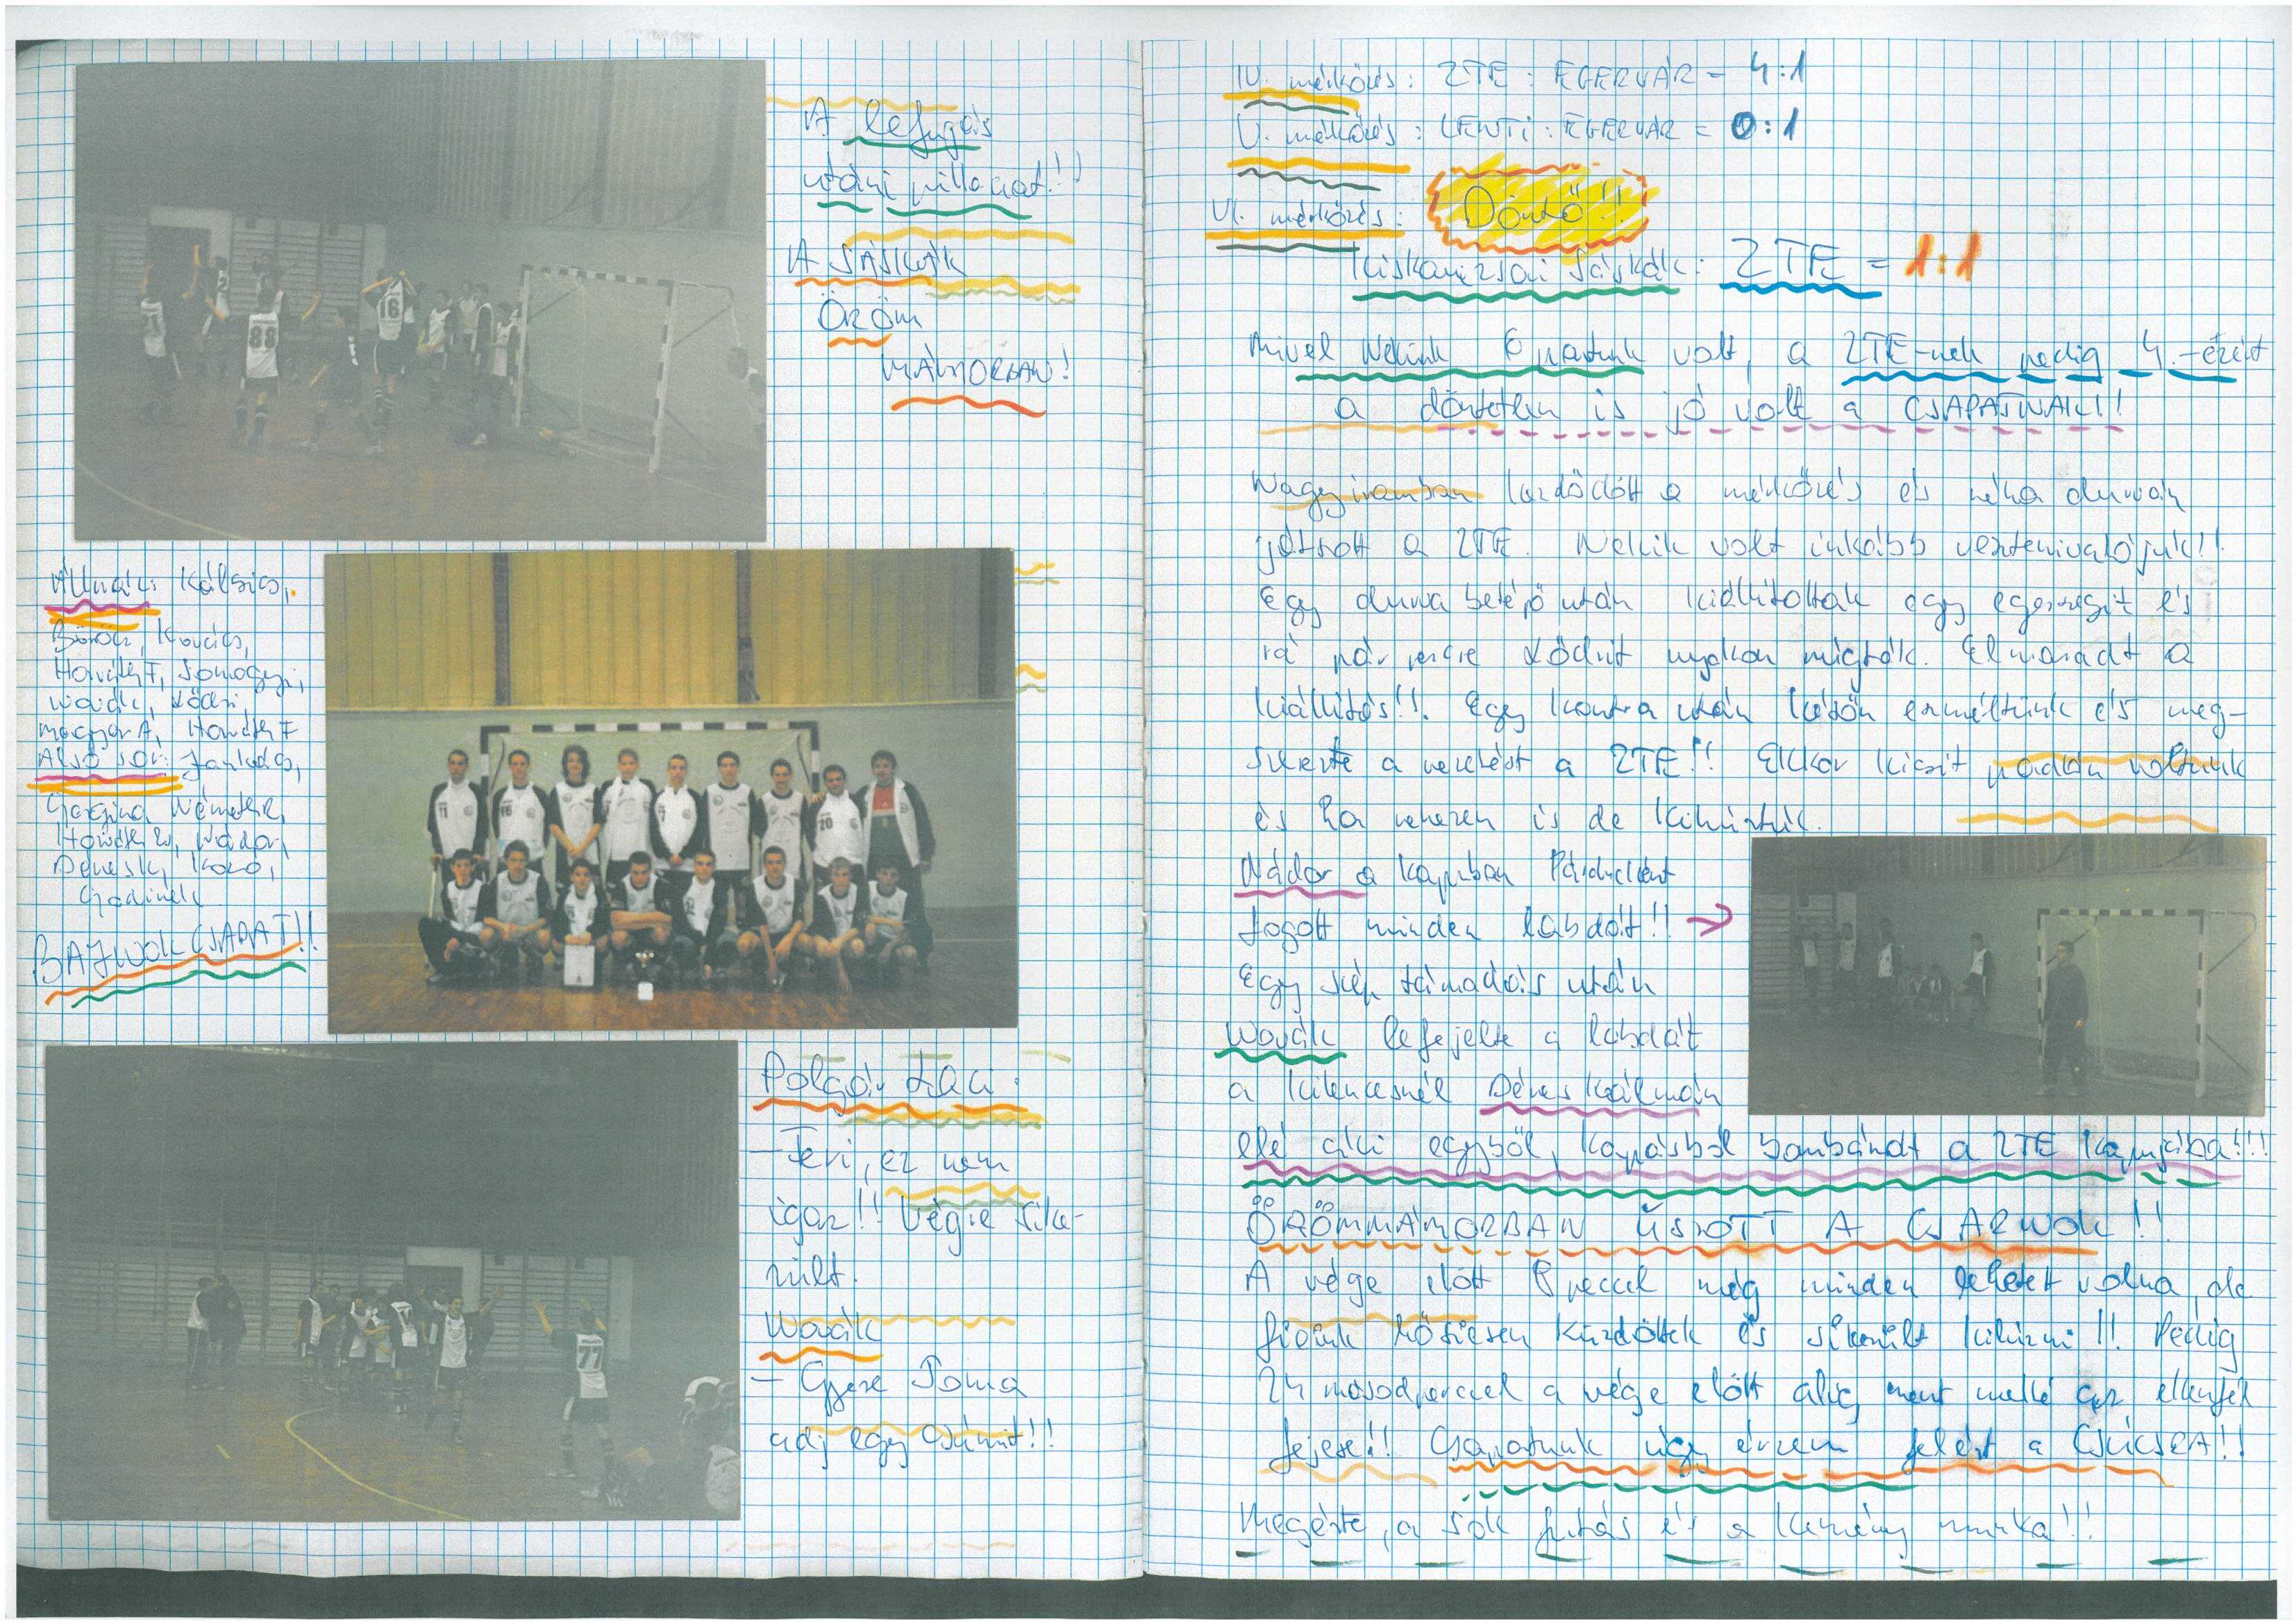 A lefúgás
utáni pillanat!!
A SÁSKÁK
ÖRÖM
MÁMORBAN!
Állnak: Kálsics,
Böröcz, Kovács,
Horváth T, Somogyi,
Novák, Ködri,
Magyar A, Horváth F
Alsó sor: Jankács,
Gazgina, Németh R,
Horváth B, Nádor,
Dénes K, Kozó,
BAJNOK CSAPAT!!
Polgár Laci:
- Feri, ez nem
igaz!! Végre sike-
rült.
Novák
- Gyere Toma
adj egy csúmit!!
IV. mérkőzés: ZTE : EGERVÁR = 4:1
V. mérkőzés: LENTI : EGERVÁR = 0:1
VI. mérkőzés: Döntő!!
Kiskanizsai Sáskák: ZTE = 1:1
Mivel nekünk 6 pontunk volt, a ZTE-nek pedig 4.-ezért
a döntetlen is jó volt a CSAPATNAK!!
Nagy iramban kezdődött a mérkőzés és néha durván
játszott a ZTE. Nekik volt inkább vesztenivalójuk!!
Egy durva belépő után kiállítottak egy egerszegit és
rá pár percre Ködrit nyakon vágták. Elmaradt a
kiállítás!!. Egy kontra után későn ermeltünk és meg-
szerezte a vezetést a ZTE!! Ekkor kicsit padlón voltunk
és ha nehezen is de kibírtuk.
Nádor a kapuban Párducként
fogott minden labdát!! →
Egy szép támadás után
Novák lefejelte a labdát
a kilencesnél Dénes Kálmán
elé aki egyből, kapásból bombázott a ZTE kapujába!!!
ÖRÖMMÁMORBAN ÚSZOTT A CSARNOK!!
A vége előtt 8 perccel még minden lehetett volna, de
fiúink hősiesen küzdöttek és sikerült kihúzni!! Pedig
24 másodperccel a vége előtt alig ment mellé az ellenfél
fejese!! Csapatunk úgy érzem felért a CSÚCSRA!!
Megérte, a sok futás és a kemény munka!!!